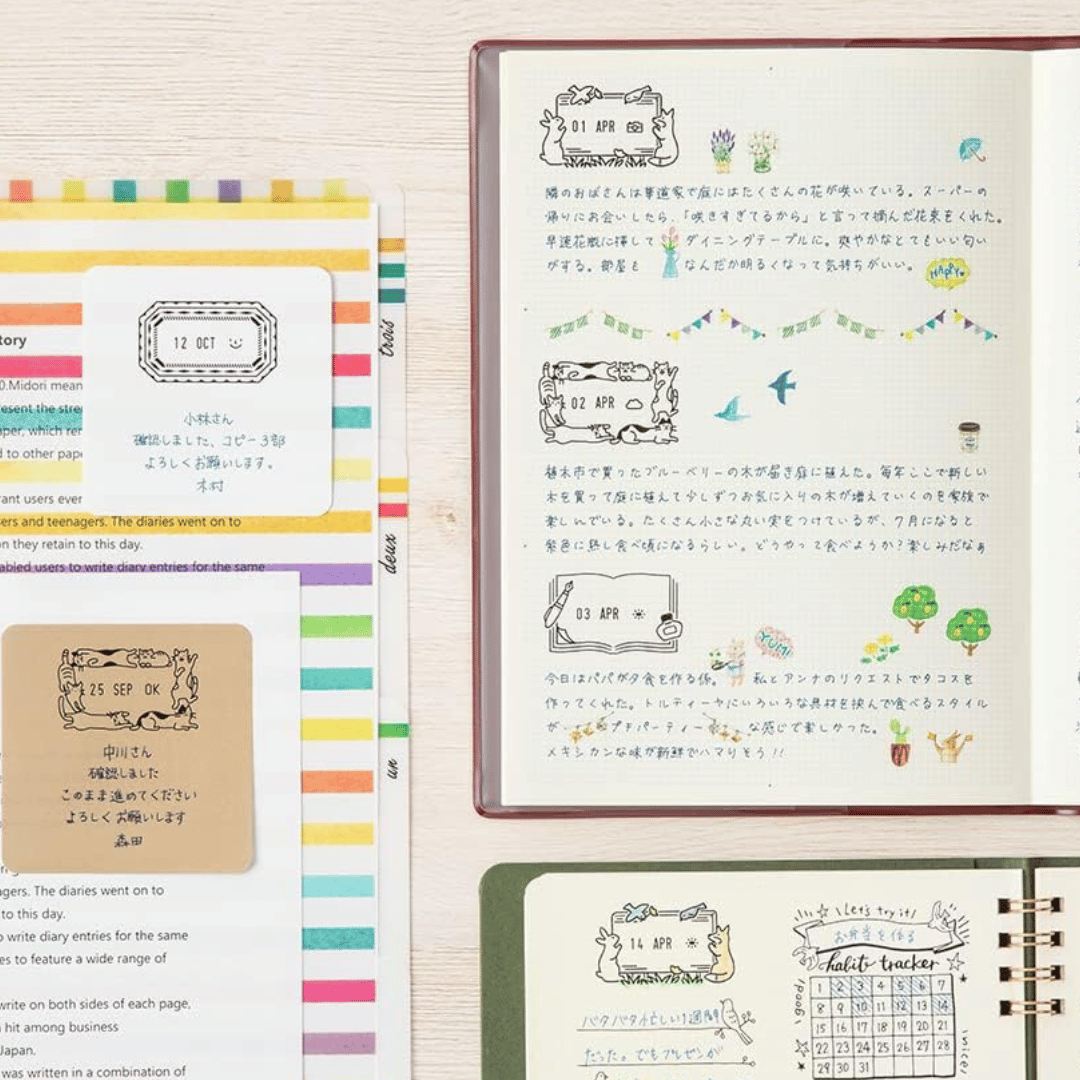 tory
0.Midori mean
esent the stre
aper, which re
d to other pape
rant users ever
sers and teenagers. The diaries went on to
on they retain to this day.
abled users to write diary entries for the same
12 OCT
小林さん
確認しました、コピー3部
よろしくお願いします。
木村
trais
deux
un
25 SEP OK
中川さん
確認しました
このまま進めてください
よろしくお願いします
森田
agers. The diaries went on to
to this day.
o write diary entries for the same
es to feature a wide range of
write on both sides of each page,
hit among business
Japan.
was written in a combination of
01 APR
隣のおばさんは華道家で庭にはたくさんの花が咲いている。スーパーの
帰りにお会いしたら、「咲きすぎてるから」と言って摘んだ花束をくれた。
早速花瓶に挿してダイニングテーブルに。爽やかなとてもいい匂い
がする。部屋もなんだか明るくなって気持ちがいい。
HAPPY
02 APR
植木市で買ったブルーベリーの木が届き庭に植えた。毎年ここで新しい
木を買って庭に植えて少しずつお気に入りの木が増えていくのを家族で
楽しんでいる。たくさん小さな丸い実をつけているが、7月になると
紫色に熟し食べ頃になるらしい。どうやって食べようか?楽しみだなぁ
03 APR
YUM!
今日はパパが夕食を作る係。私とアンナのリクエストでタコスを
作ってくれた。トルティーヤにいろいろな具材を挟んで食べるスタイル
がプチパーティーな感じで楽しかった。
メキシカンな味が新鮮でハマりそう!!
14 APR
バタバタ忙しい1週間
だった。でもプレゼンが
Let's try it!
お弁当を作る
habit tracker
good!
1 2 3 4 5 6 7
8 9 10 11 12 13 14
15 16 17 18 19 20 21
22 23 24 25 26 27 28
29 30 31
nice!